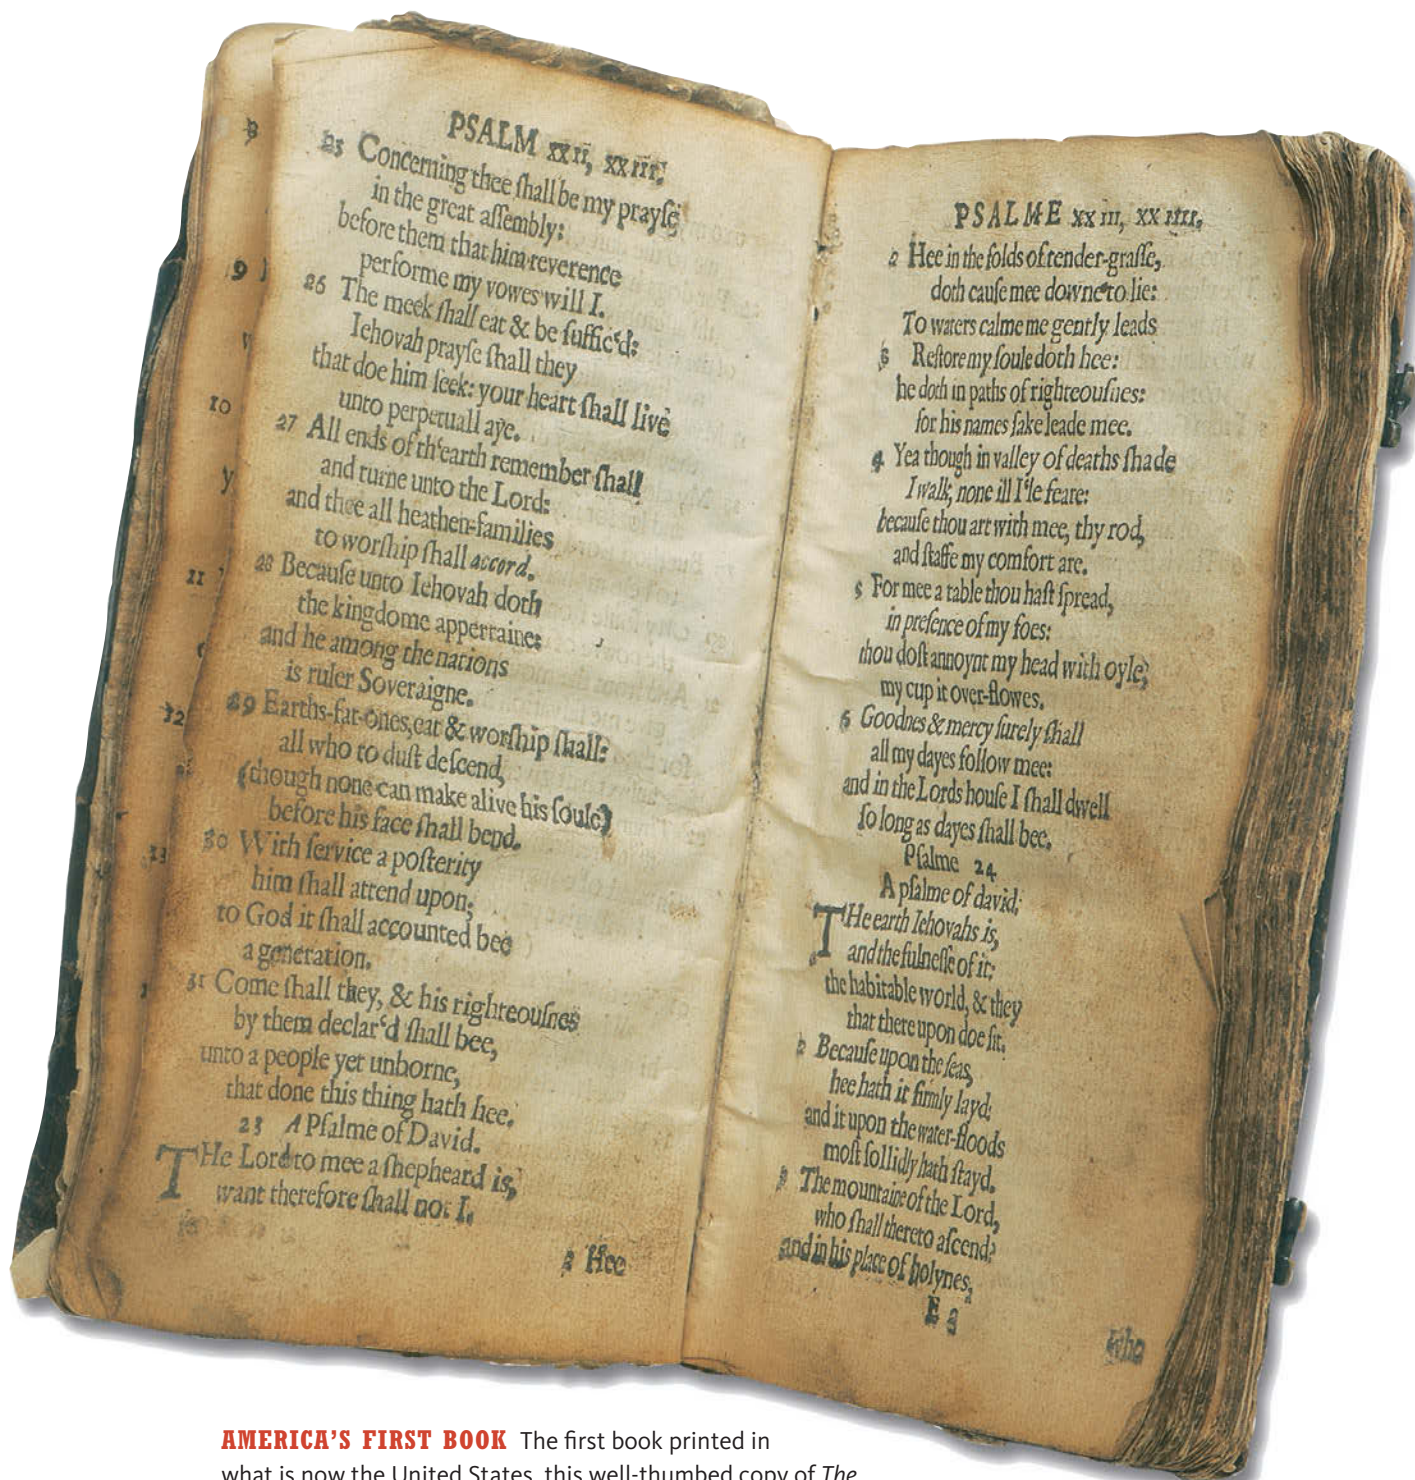 PSALM XXII, XXIII,
25 Concerning thee ſhall be my prayſe
in the great aſſembly:
before them that him reverence
performe my vowes will I.
26 The meek ſhall eat & be ſuffic‘d:
Iehovah prayſe ſhall they
that doe him ſeek: your heart ſhall live
unto perpetuall aye.
27 All ends of th‘earth remember ſhall
and turne unto the Lord:
and thee all heathen-families
to worſhip ſhall accord.
28 Becauſe unto Iehovah doth
the kingdome appertaine:
and he among the nations
is ruler Soveraigne.
29 Earths-fat-ones, eat & worſhip ſhall:
all who to duſt deſcend,
(though none can make alive his ſoule)
before his face ſhall bend.
30 With ſervice a poſterity
him ſhall attend upon;
to God it ſhall accounted bee
a generation.
31 Come ſhall they, & his righteouſnes
by them declar‘d ſhall bee,
unto a people yet unborne,
that done this thing hath hee.
23 A Pſalme of David.
THe Lord to mee a ſhepheard is,
want therefore ſhall not I.
2 Hee
9
10
y
11
12
13
PSALME XXIII, XXIIII,
2 Hee in the folds of tender-graſſe,
doth cauſe mee downe to lie:
To waters calme me gently leads
3 Reſtore my ſoule doth hee:
he doth in paths of righteouſnes:
for his names ſake leade mee.
4 Yea though in valley of deaths ſhade
I walk, none ill I‘le feare:
becauſe thou art with mee, thy rod,
and ſtaffe my comfort are.
5 For mee a table thou haſt ſpread,
in preſence of my foes:
thou doſt annoynt my head with oyle,
my cup it over-flowes.
6 Goodnes & mercy ſurely ſhall
all my dayes follow mee:
and in the Lords houſe I ſhall dwell
ſo long as dayes ſhall bee.
Pſalme 24
A pſalme of david.
THe earth Iehovahs is,
and the fulneſſe of it:
the habitable world, & they
that there upon doe ſit.
2 Becauſe upon the ſeas,
hee hath it firmly layd:
and it upon the water-floods
moſt ſollidly hath ſtayd.
3 The mountaine of the Lord,
who ſhall thereto aſcend?
and in his place of holynes,
E 2
who
AMERICA'S FIRST BOOK The first book printed in
what is now the United States, this well-thumbed copy of The